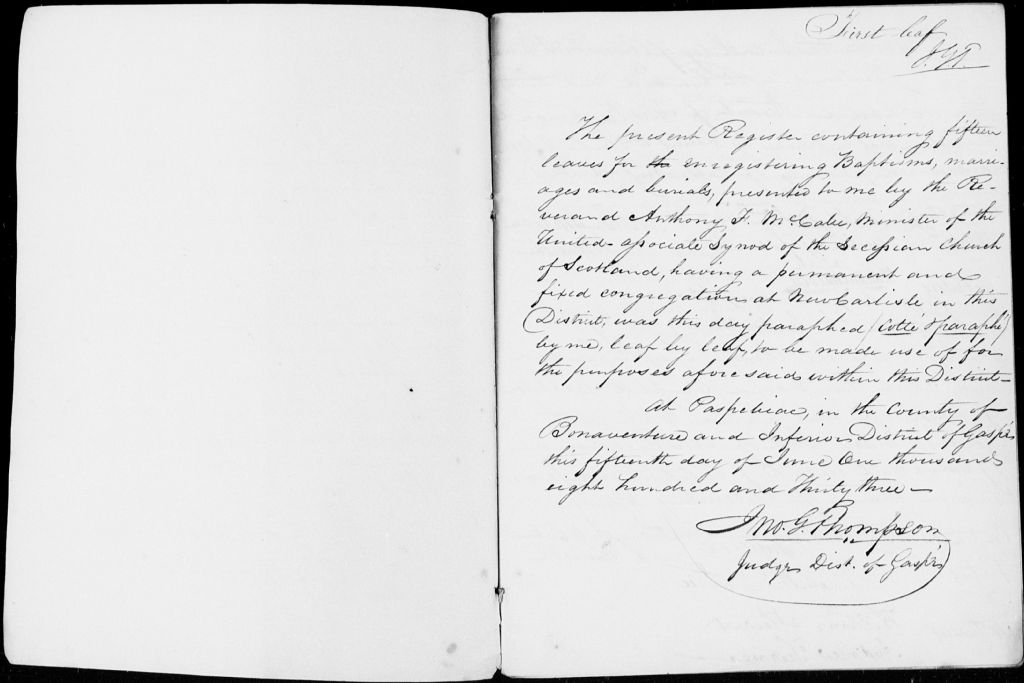 First leaf
J.G.T.
The present Register containing fifteen
leaves for the enregistering Baptisms, marri-
ages and burials, presented to me by the Re-
verand Anthony F. McCabe, Minister of the
United associate Synod of the Secession Church
of Scotland, having a permanent and
fixed congregation at New Carlisle in this
District, was this day paraphed (cotté & paraphé)
by me, leaf by leaf, to be made use of for
the purposes afore said within this District—
At Paspebiac, in the County of
Bonaventure and Inferior District of Gaspé
this fifteenth day of June One thousand
eight hundred and Thirty three—
Jno. G. Thompson
Judge Dist. of Gaspé